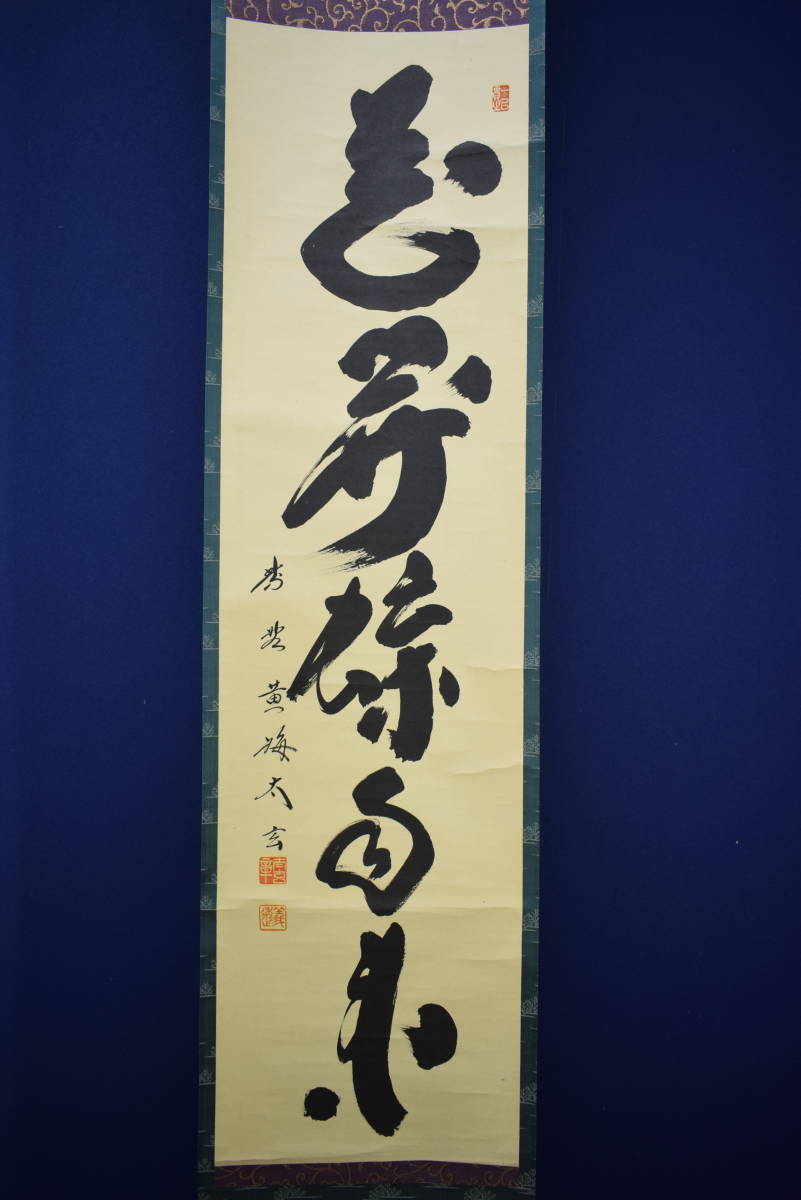 花開蝶自来
黄梅太玄